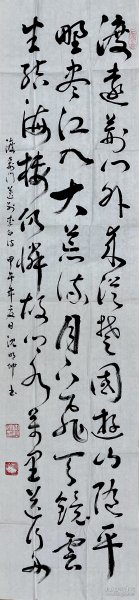 渡远荆门外来从楚国游山随平
野尽江入大荒流月下飞天镜云
生结海楼仍怜故乡水万里送行舟
渡荆门送别李白诗甲午年夏日沈明坤书